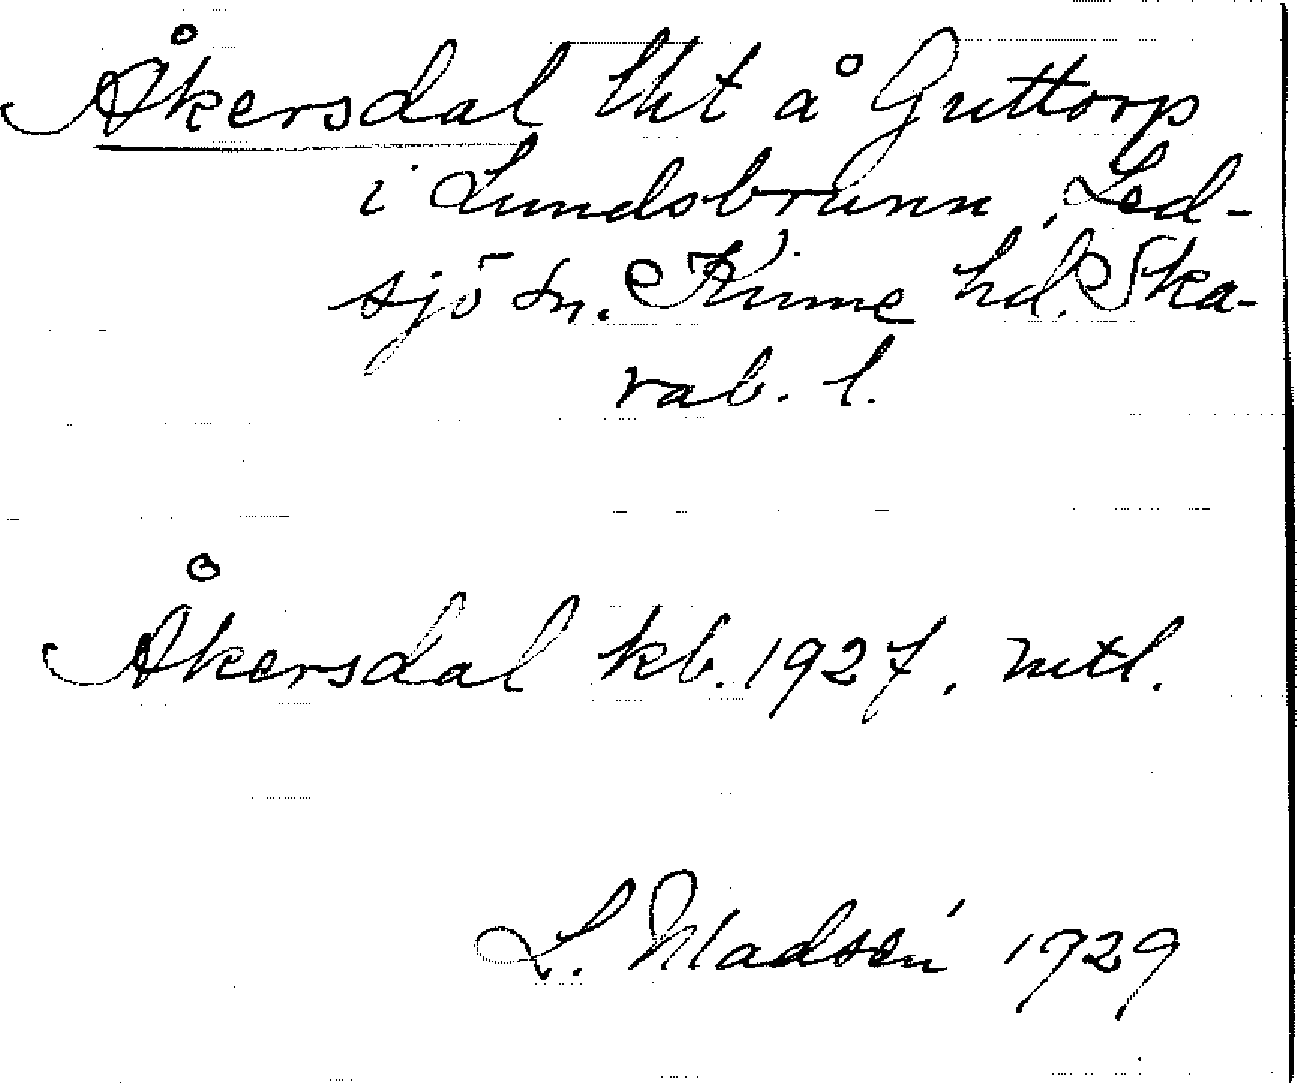 Åkersdal lht å Guttorp
i Lundsbrunn, Led-
sjö sn. Kinne hd. Ska-
rab. l.
Åkersdal kb. 1927, mtl.
L. Madsén 1929